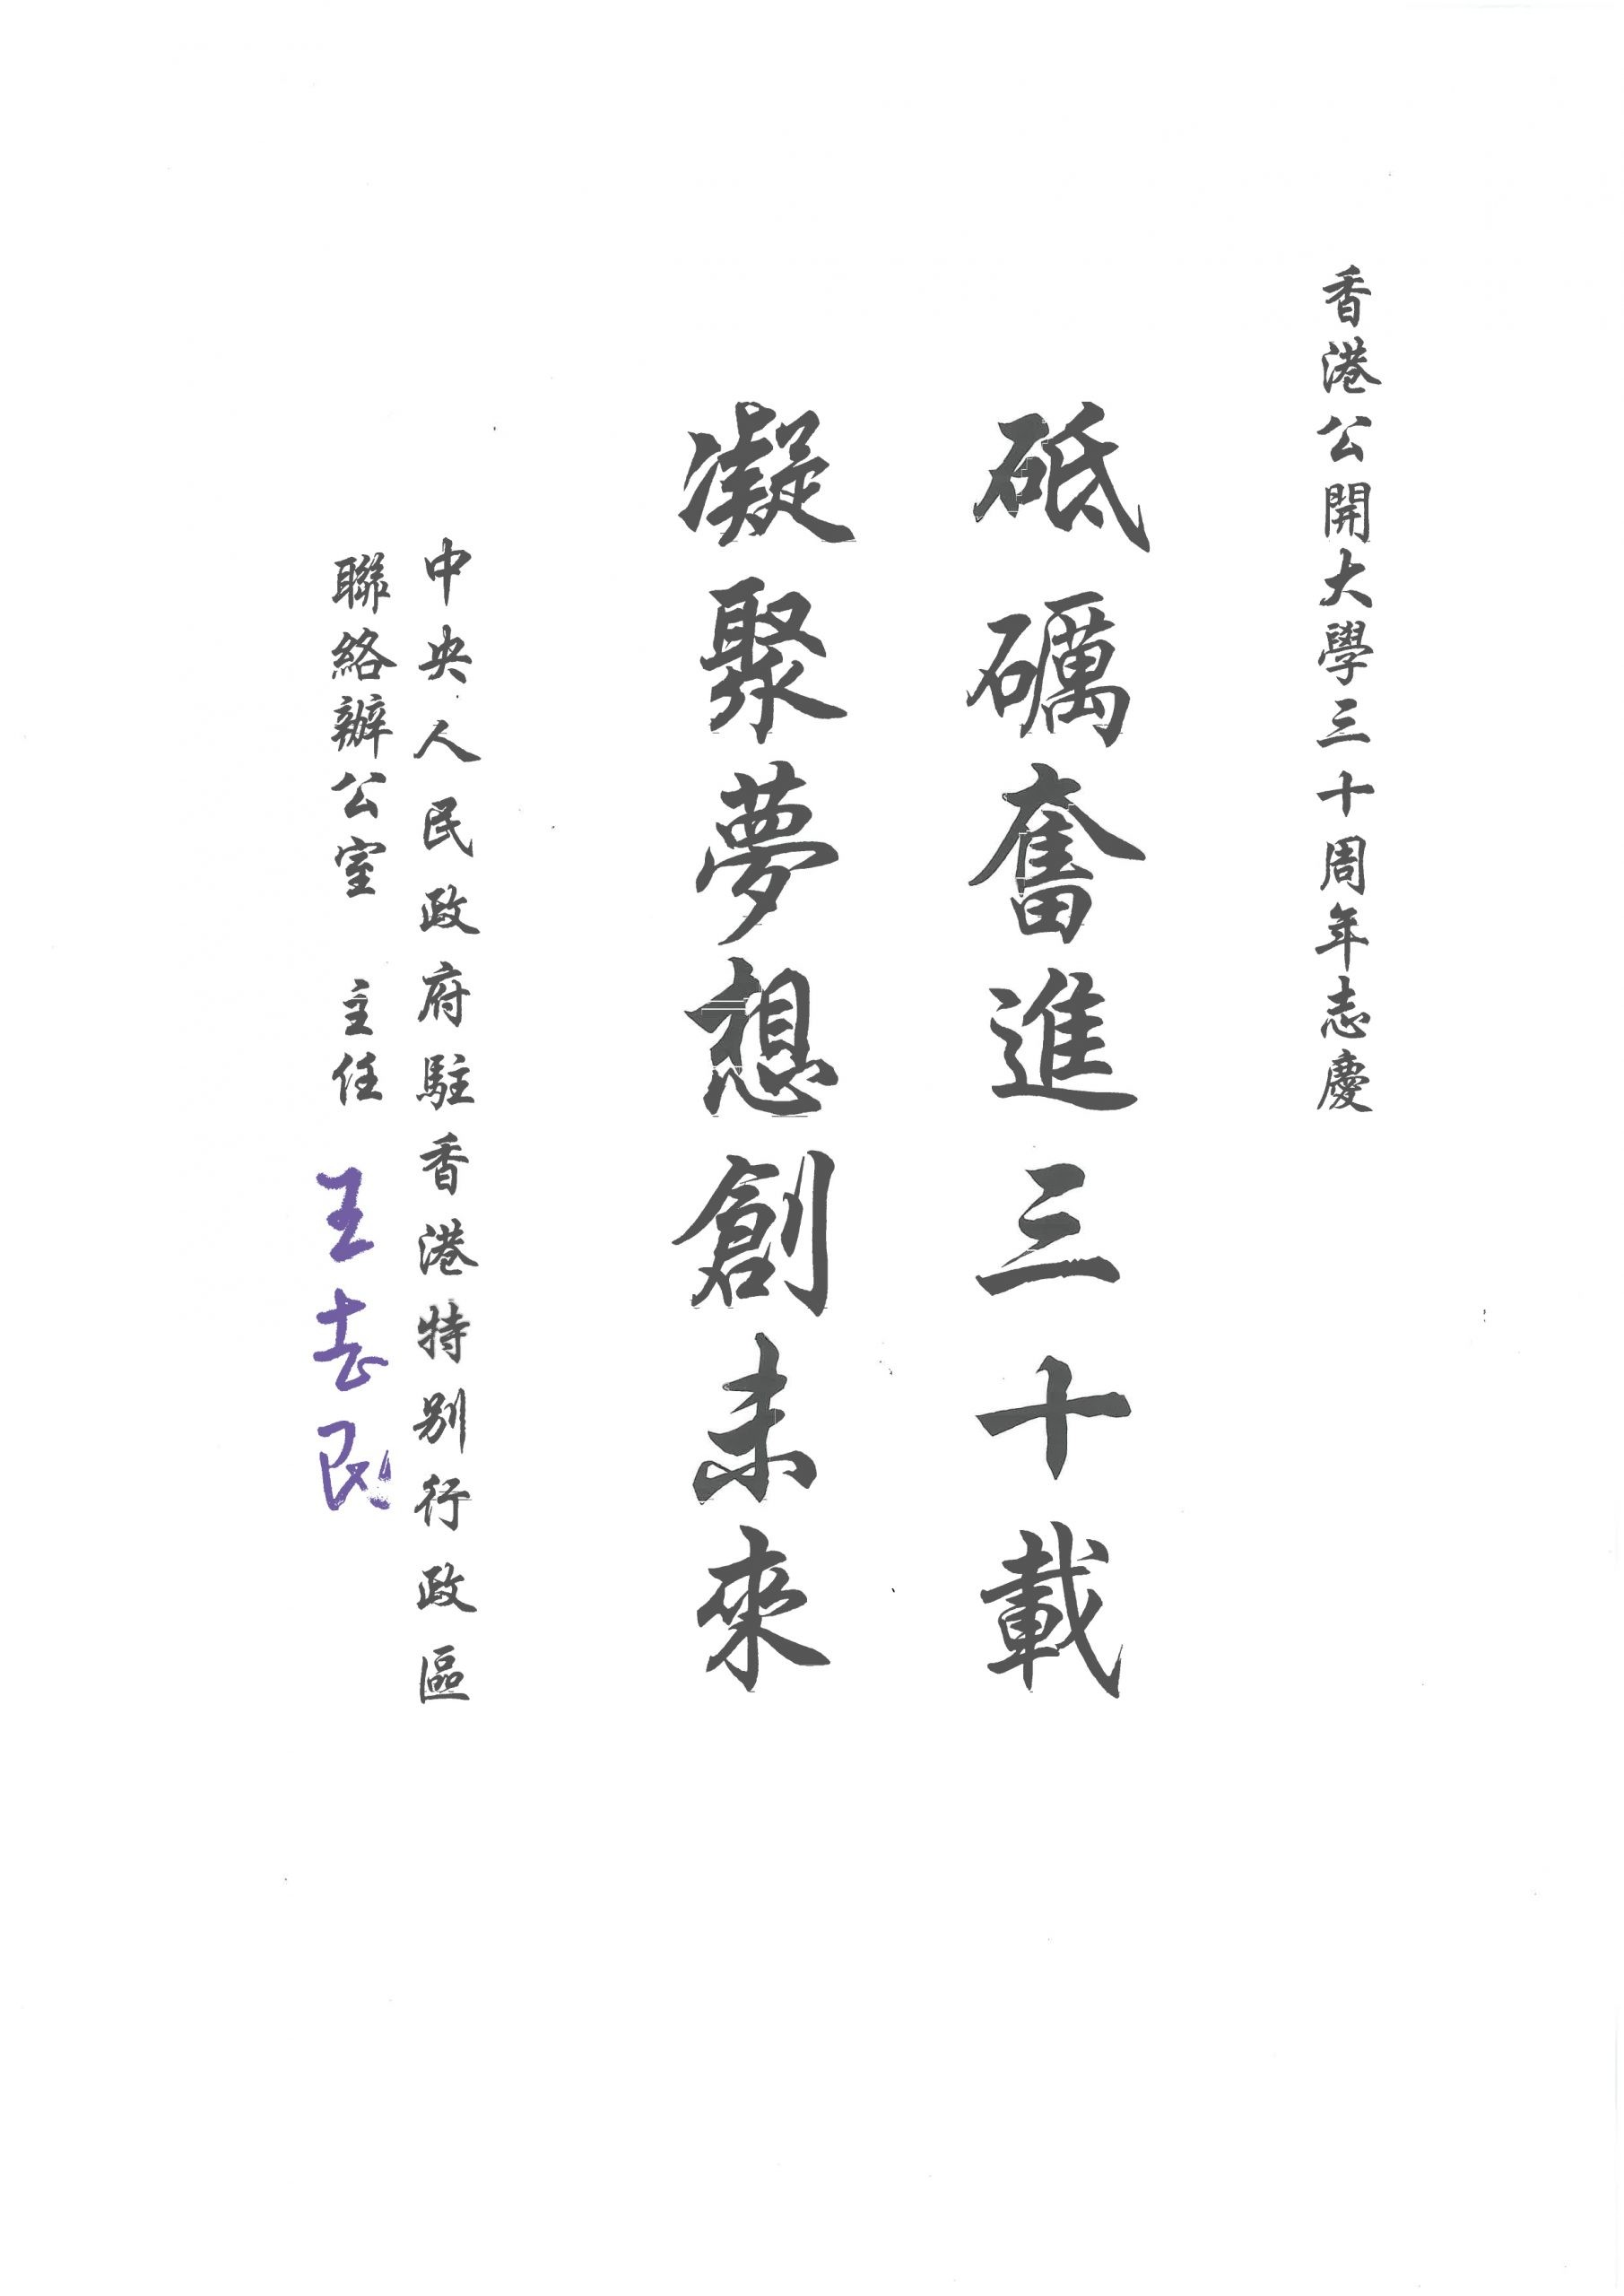 香港公開大學三十周年志慶
砥礪奮進三十載
凝聚夢想創未來
中央人民政府駐香港特別行政區
聯絡辦公室 主任 王志民